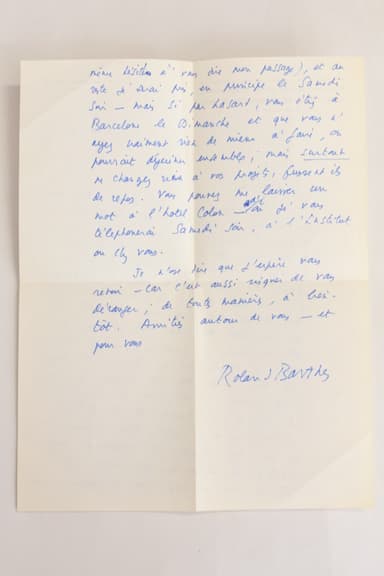 même hésiter à vous dire mon passage), et au
reste j'irai pris, en principe le Samedi
Soir — mais si par hasard, vous étiez à
Barcelone le Dimanche et que vous n'
ayez vraiment rien de mieux à faire, on
pourrait déjeuner ensemble ; mais surtout
ne changez rien à vos projets, fussent-ils
de repos. Vous pouvez me laisser un
mot à l'hôtel Colon – je vous
téléphonerai Samedi soir, à l'Institut
ou chez vous.
Je n'ose dire que j'espère vous
revoir – car c'est aussi risquer de vous
déranger ; de toutes manières, à bien-
tôt. Amitiés autour de vous – et
pour vous
Roland Barthes